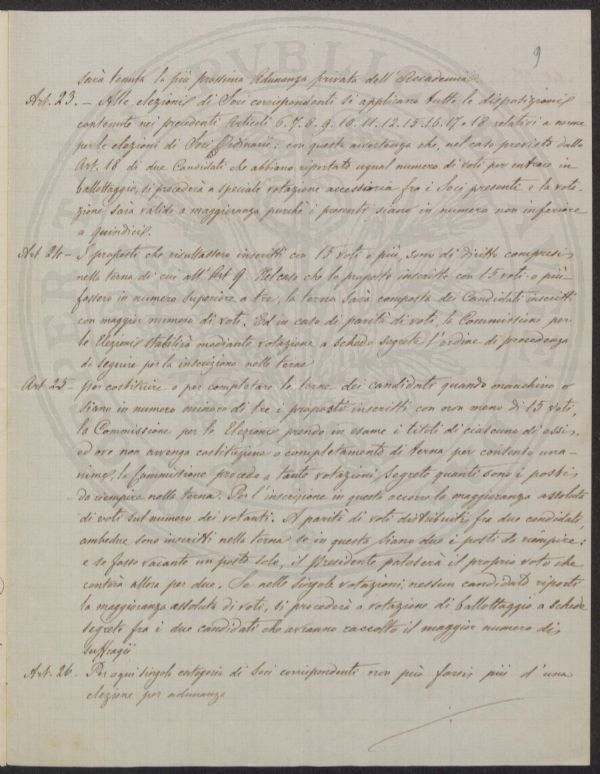 9
sarà tenuta la più prossima Adunanza privata dell'Accademia.
Art. 23. – Alle elezioni di Soci corrispondenti si applicano tutte le disposizioni
contenute nei precedenti Articoli 6. 7. 8. 9. 10. 11. 12. 15. 16. 17 e 18 relativi a norme
per le elezioni di Soci Ordinarii: con questa avvertenza che, nel caso previsto dallo
Art. 18 di due Candidati che abbiano riportato ugual numero di voti per entrare in
ballottaggio, si procederà a speciale votazione accessoria fra i Soci presenti e la vota-
zione sarà valida a maggioranza purchè i presenti siano in numero non inferiore
a quindici.
Art. 24 – I proposti che risultassero inscritti con 15 voti o più, sono di diritto compresi
nella terna di cui all'Art 9. Nel caso che le proposte inscritte con 15 voti o più
fossero in numero superiore a tre, la terna sarà composta dei Candidati inscritti
con maggior numero di voti. Ed in caso di parità di voti, la Commissione per
le Elezioni stabilirà mediante votazione a schede segrete l'ordine di precedenza
da seguire per la inscrizione nelle terne
Art. 25 – Per costituire o per completare le terne, dei candidati quando manchino o
siano in numero minore di tre i proposti inscritti con non meno di 15 voti,
la Commissione per le Elezioni prende in esame i titoli di ciascuno di essi,
ed ove non avvenga costituzione o completamento di terna per consenso una-
nime, la Commissione procede a tante votazioni segrete quanti sono i posti
da riempire nella terna. Per l'inscrizione in questa occorre la maggioranza assoluta
di voti sul numero dei votanti. A parità di voti distribuiti fra due candidati,
ambedue sono inscritti nella terna se in questa siano due i posti da riempire:
e se fosse vacante un posto solo, il Presidente paleserà il proprio voto che
conterà allora per due. Se nelle singole votazioni, nessun candidato riporti
la maggioranza assoluta di voti, si procederà a votazione di ballottaggio a schede
segrete fra i due candidati che avranno raccolto il maggior numero di
suffragii
Art. 26. Per ogni singola categoria di Soci corrispondenti non può farsi più d'una
elezione per adunanza